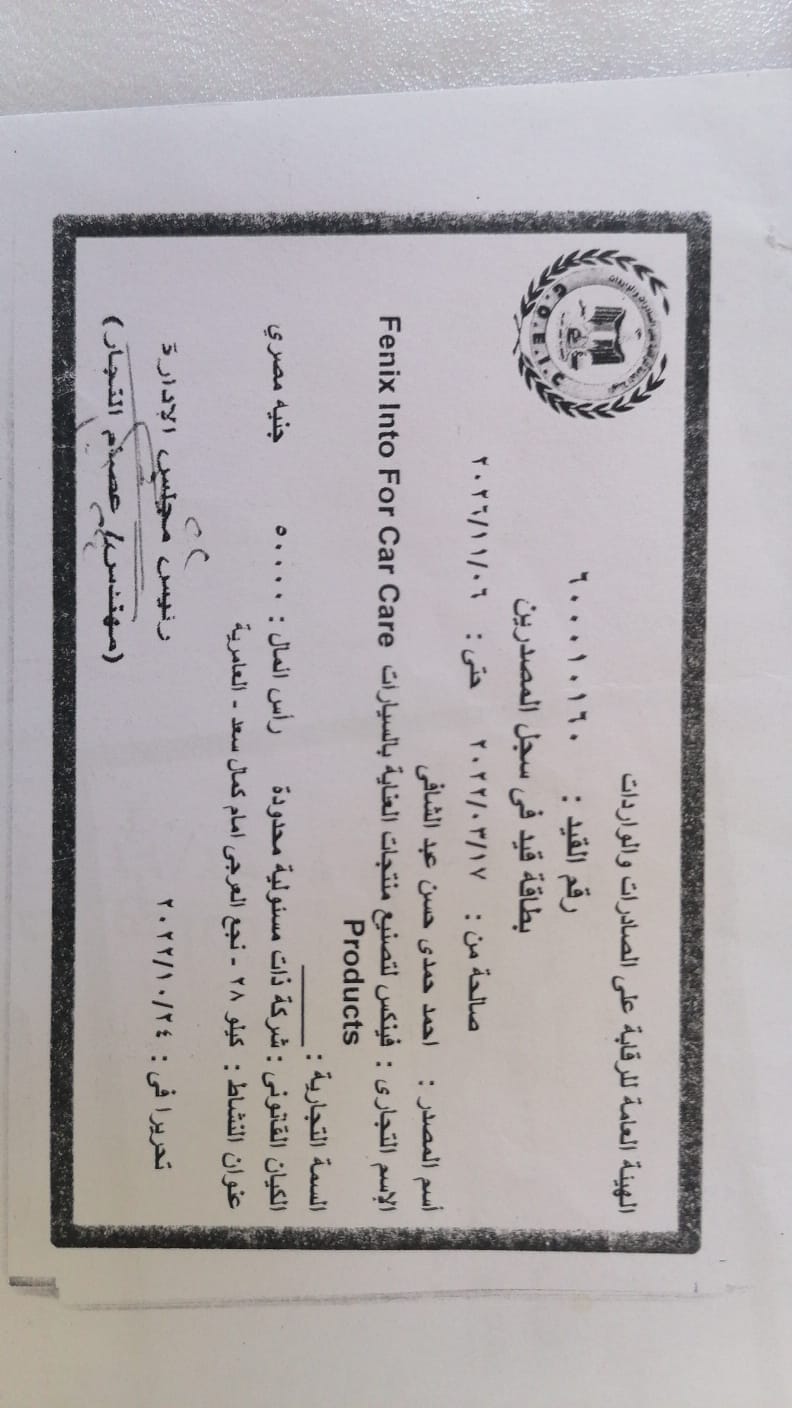 الهيئة العامة للرقابة على الصادرات والواردات
G.O.E.I.C
رقم القيد : ٦٠٠٠١٠١٦٠
بطاقة قيد فى سجل المصدرين
صالحة من : ٢٠٢٢/٠٣/١٧ حتى : ٢٠٢٦/١١/٠٦
أسم المصدر : احمد حمدى حسن عبد الشافى
الإسم التجارى : فينكس لتصنيع منتجات العناية بالسيارات Fenix Into For Car Care
Products
السمة التجارية :
الكيان القانونى : شركة ذات مسئولية محدودة رأس المال : ٥٠٠٠٠ جنيه مصري
عنوان النشاط : كيلو ٢٨ - نجع العرجى امام كمال سعد - العامرية
تحريرا فى : ٢٠٢٢/١٠/٢٤
رئيس مجلس الإدارة
(مهندس/ عصام النجار)